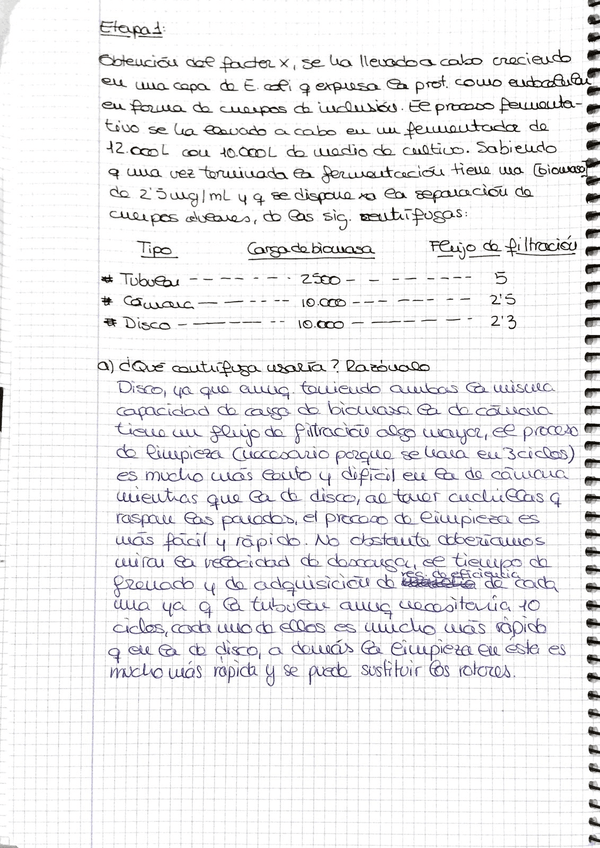 Etapa 1:
Obtención del factor X, se ha llevado a cabo creciendo
en una cepa de E. coli q expresa la prot. como endocelular
en forma de cuerpos de inclusión. El proceso fermenta-
tivo se ha llevado a cabo en un fermentador de
12.000L con 10.000L de medio de cultivo. Sabiendo
q una vez terminada la fermentación tiene una [biomasa]
de 2'5mg/mL y q se dispone la separación de
cuerpos celulares, de las sig. centrífugas:
Tipo Carga de biomasa Flujo de filtración
* Tubular ------- 2500 -------- 5
* Cámara ------- 10.000 ------- 2'5
* Disco ------- 10.000 ------- 2'3
a) ¿Qué centrífuga usaría? Razónalo
Disco, ya que aunq. teniendo ambas la misma
capacidad de carga de biomasa la de cámara
tiene un flujo de filtración algo mayor, el proceso
de limpieza (necesario porque se hará en 3 ciclos)
es mucho más lento y difícil en la de cámara
mientras que la de disco, al tener cuchillas q
raspan las paredes, el proceso de limpieza es
más fácil y rápido. No obstante deberíamos
mirar la velocidad de descarga, el tiempo de
frenado y de adquisición de de eficiencia de cada
una ya q la tubular aunq necesitaría 10
ciclos, cada uno de ellos es mucho más rápido
q en la de disco, a demás la limpieza en este es
mucho más rápida y se puede sustituir los rotores.